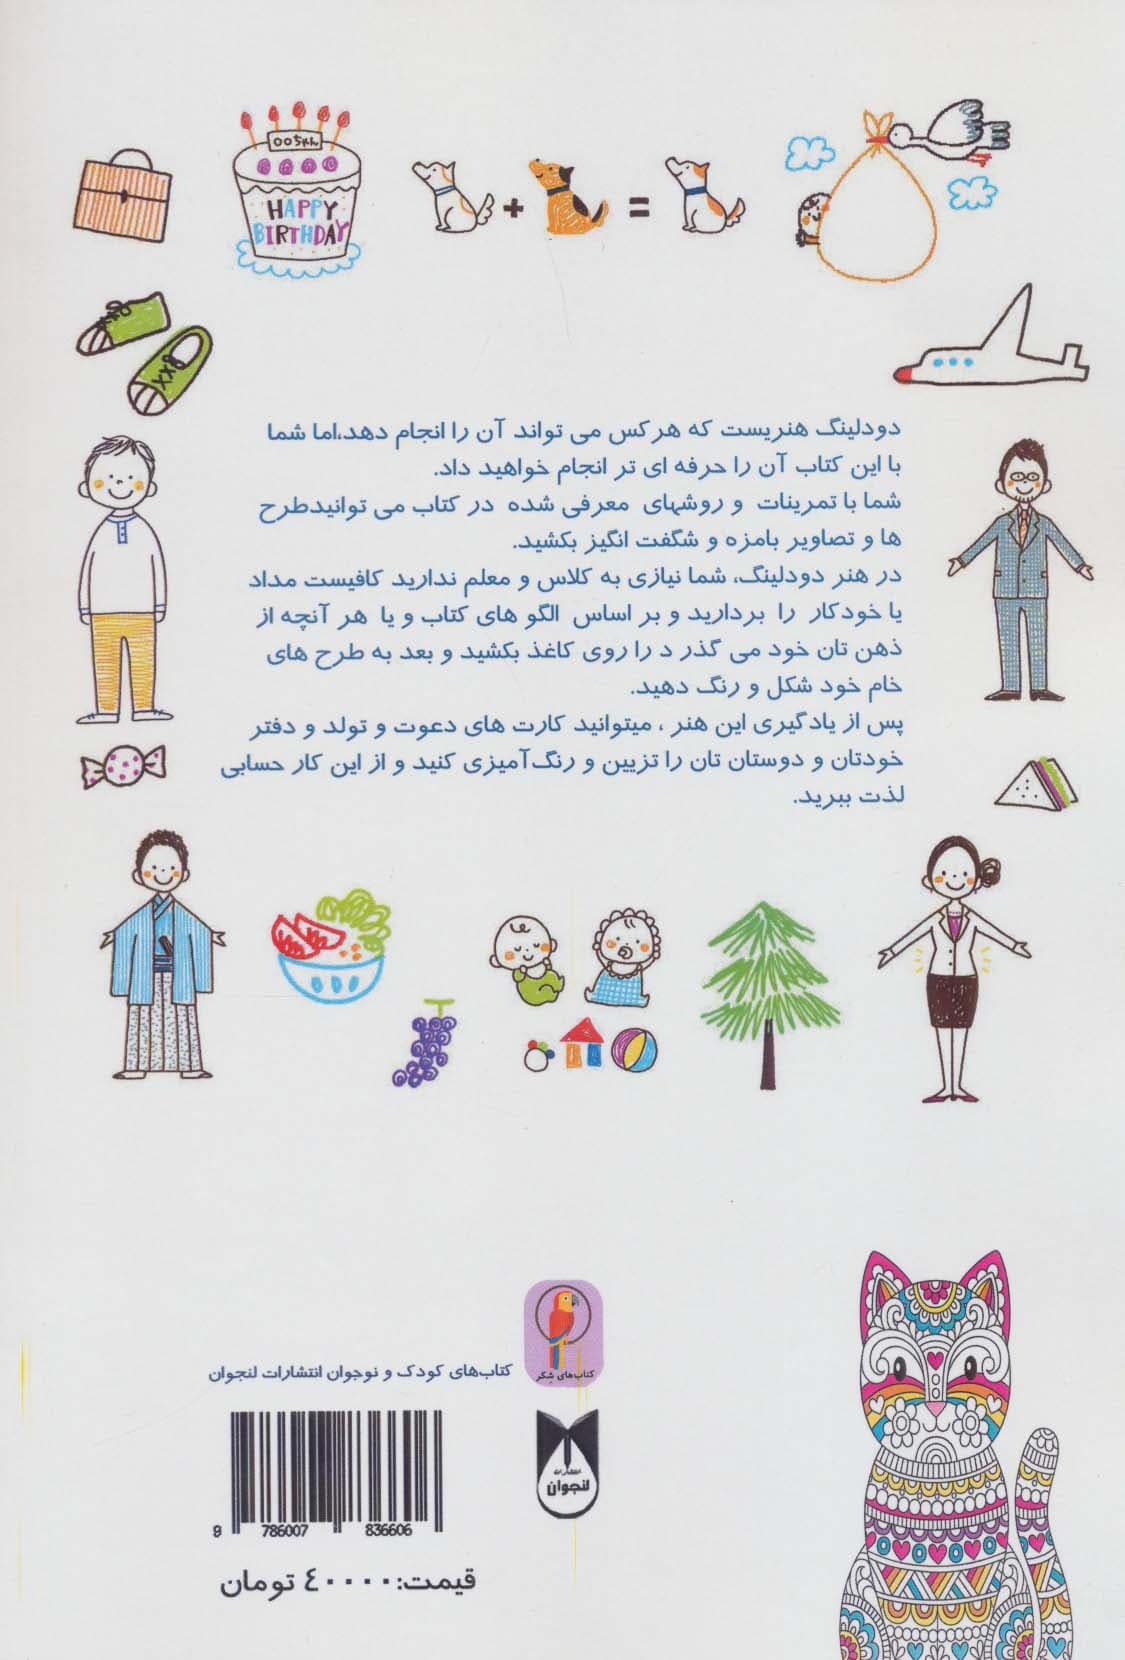 HAPPY
BIRTHDAY
+
=
دودلینگ هنریست که هر کس می تواند آن را انجام دهد،اما شما
با این کتاب آن را حرفه ای تر انجام خواهید داد.
شما با تمرینات و روشهای معرفی شده در کتاب می توانیدطرح
ها و تصاویر بامزه و شگفت انگیز بکشید.
در هنر دودلینگ، شما نیازی به کلاس و معلم ندارید کافیست مداد
یا خودکار را بردارید و بر اساس الگو های کتاب و یا هر آنچه از
ذهن تان خود می گذر د را روی کاغذ بکشید و بعد به طرح های
خام خود شکل و رنگ دهید.
پس از یادگیری این هنر ، میتوانید کارت های دعوت و تولد و دفتر
خودتان و دوستان تان را تزیین و رنگ‌آمیزی کنید و از این کار حسابی
لذت ببرید.
کتاب‌های شگر
کتاب‌های کودک و نوجوان انتشارات لنجوان
انتشارات
لنجوان
9 786007 836606
قیمت:۴۰۰۰۰ تومان